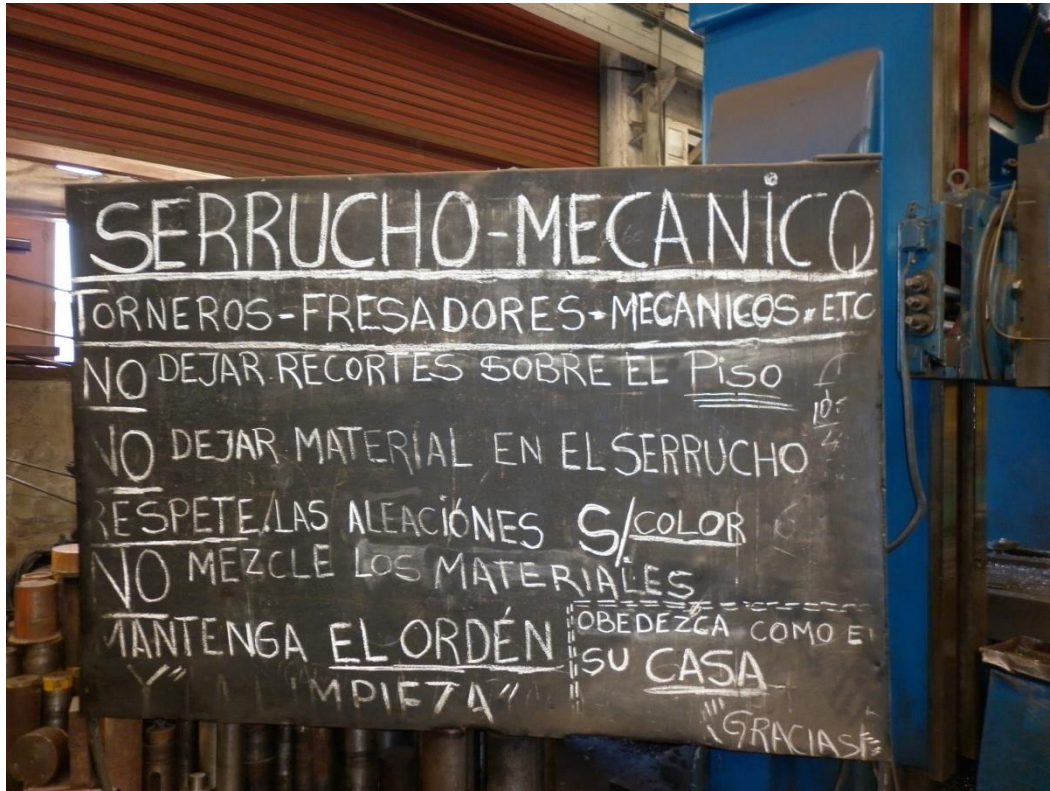 SERRUCHO-MECANiCO
TORNEROS-FRESADORES-MECANICOS. ETC
NO DEJAR RECORTES SOBRE EL PiSO
NO DEJAR MATERIAL EN EL SERRUCHO
RESPETE LAS ALEACIÓNES S/COLOR
NO MEZCLE LOS MATERIALES
MANTENGA EL ORDÉN
Y" MPIEZA"
OBEDEZCA COMO E
SU CASA
"GRACIAS"